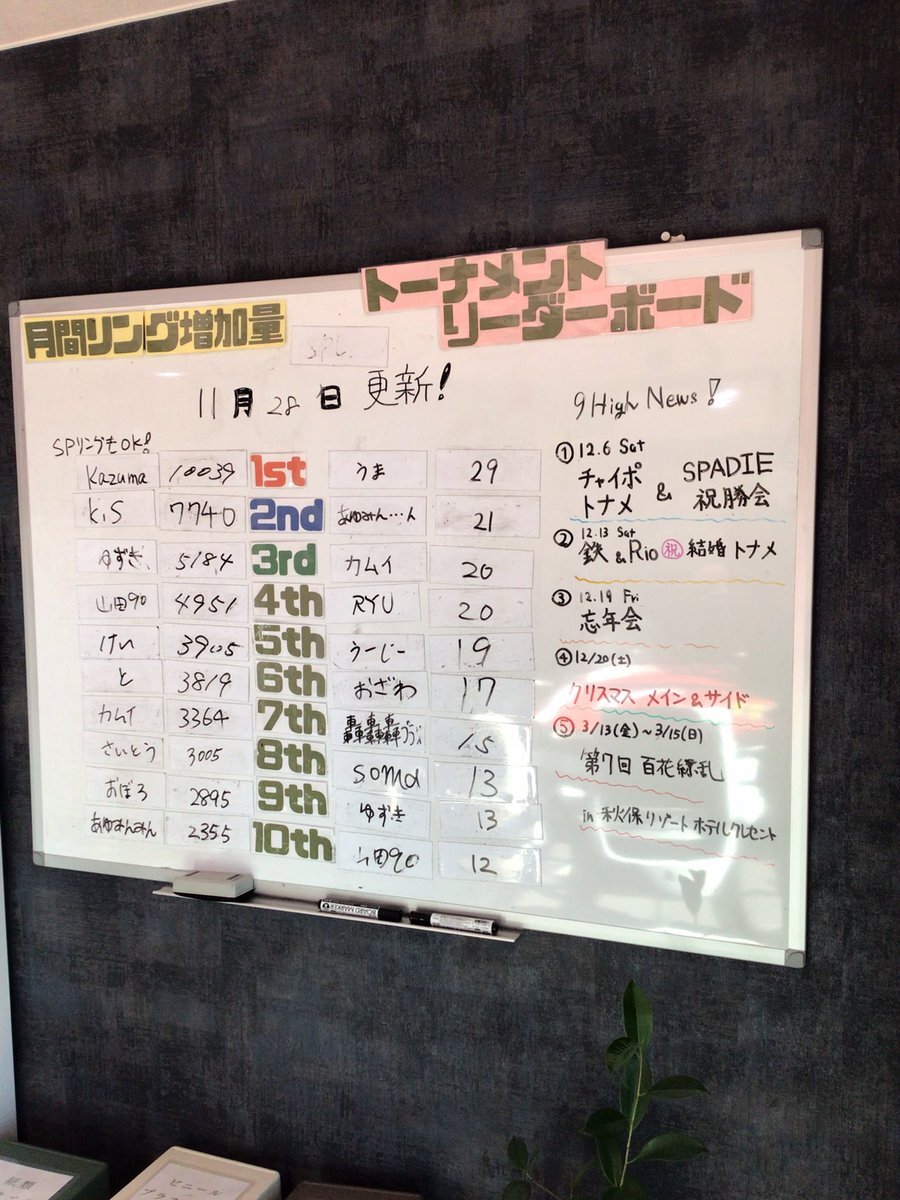 トーナメント
リーダーボード
月間リング増加量
11月28日 更新!
SPリングもOK!
Kazuma 10039 1st うま 29
KiS 7740 2nd あゆみん…ん 21
ゆずき 5184 3rd カムイ 20
山田90 4951 4th RYU 20
けい 3905 5th うーじー 19
と 3819 6th おざわ 17
カムイ 3364 7th 15
さいとう 3005 8th soma 13
おぼろ 2895 9th ゆずき 13
あゆみんみん 2355 10th 山田90 12
9High News!
① 12.6 Sat
チャイポ
トナメ & SPADIE
祝勝会
② 12.13 Sat
鉄&Rio ㊗ 結婚トナメ
③ 12.19 Fri
忘年会
④ 12/20(土)
クリスマス メイン&サイド
⑤ 3/13(金)~3/15(日)
第7回 百花繚乱
in 秋保リゾートホテルクレセント
BOARD MARKER
紙類
ビニール
プラ